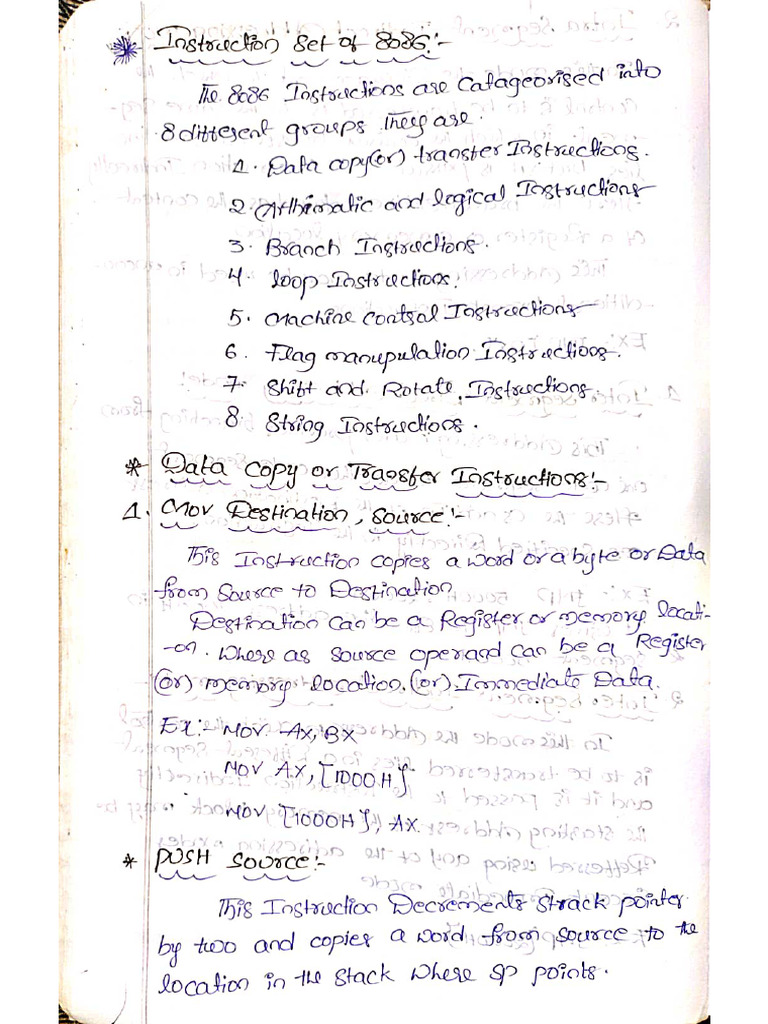 * Instruction Set of 8086:-
The 8086 Instructions are Catageorised into
8 different groups They are.
1. Data copy (or) transfer Instructions.
2. Arthimatic and logical Instructions
3. Branch Instructions.
4. loop Instructions.
5. Machine control Instructions
6. Flag manupulation Instructions.
7. Shift and Rotate Instructions.
8. String Instructions.
* Data copy or Transfer Instructions:-
1. Mov Destination, source:-
This Instruction copies a word or a byte or Data
from source to Destination
Destination can be a Register or memory locati-
-on. Where as source operand can be a Register
(or) memory location. (or) Immediate Data.
Ex:- MOV AX, BX
MOV AX, [1000H]
MOV [1000H], AX.
* PUSH Source:-
This Instruction Decrements strack pointer
by two and copies a word from source to the
location in the stack where sp points.